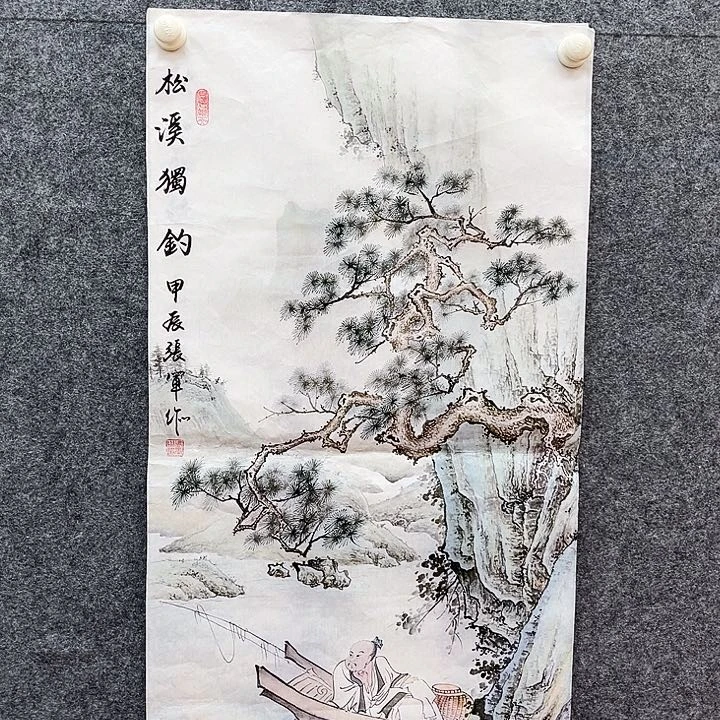 松溪獨釣甲辰張軍作